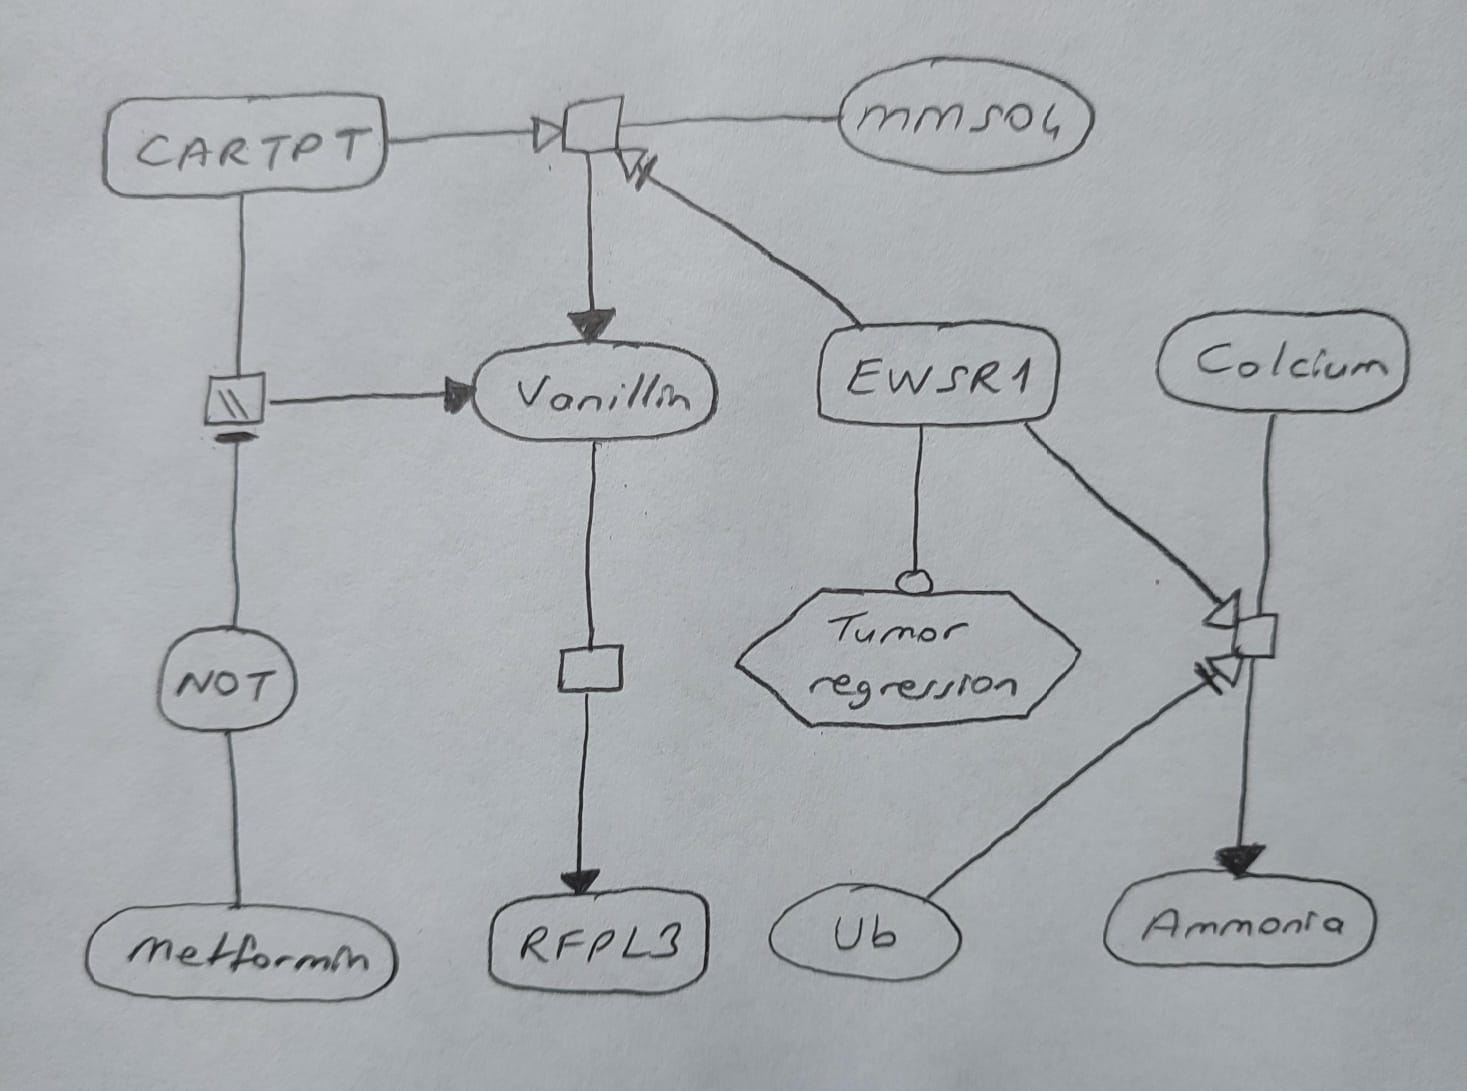 CARTPT
mmso4
Vanillin
EWSR1
Calcium
NOT
Tumor
regression
metformin
RFPL3
Ub
Ammonia